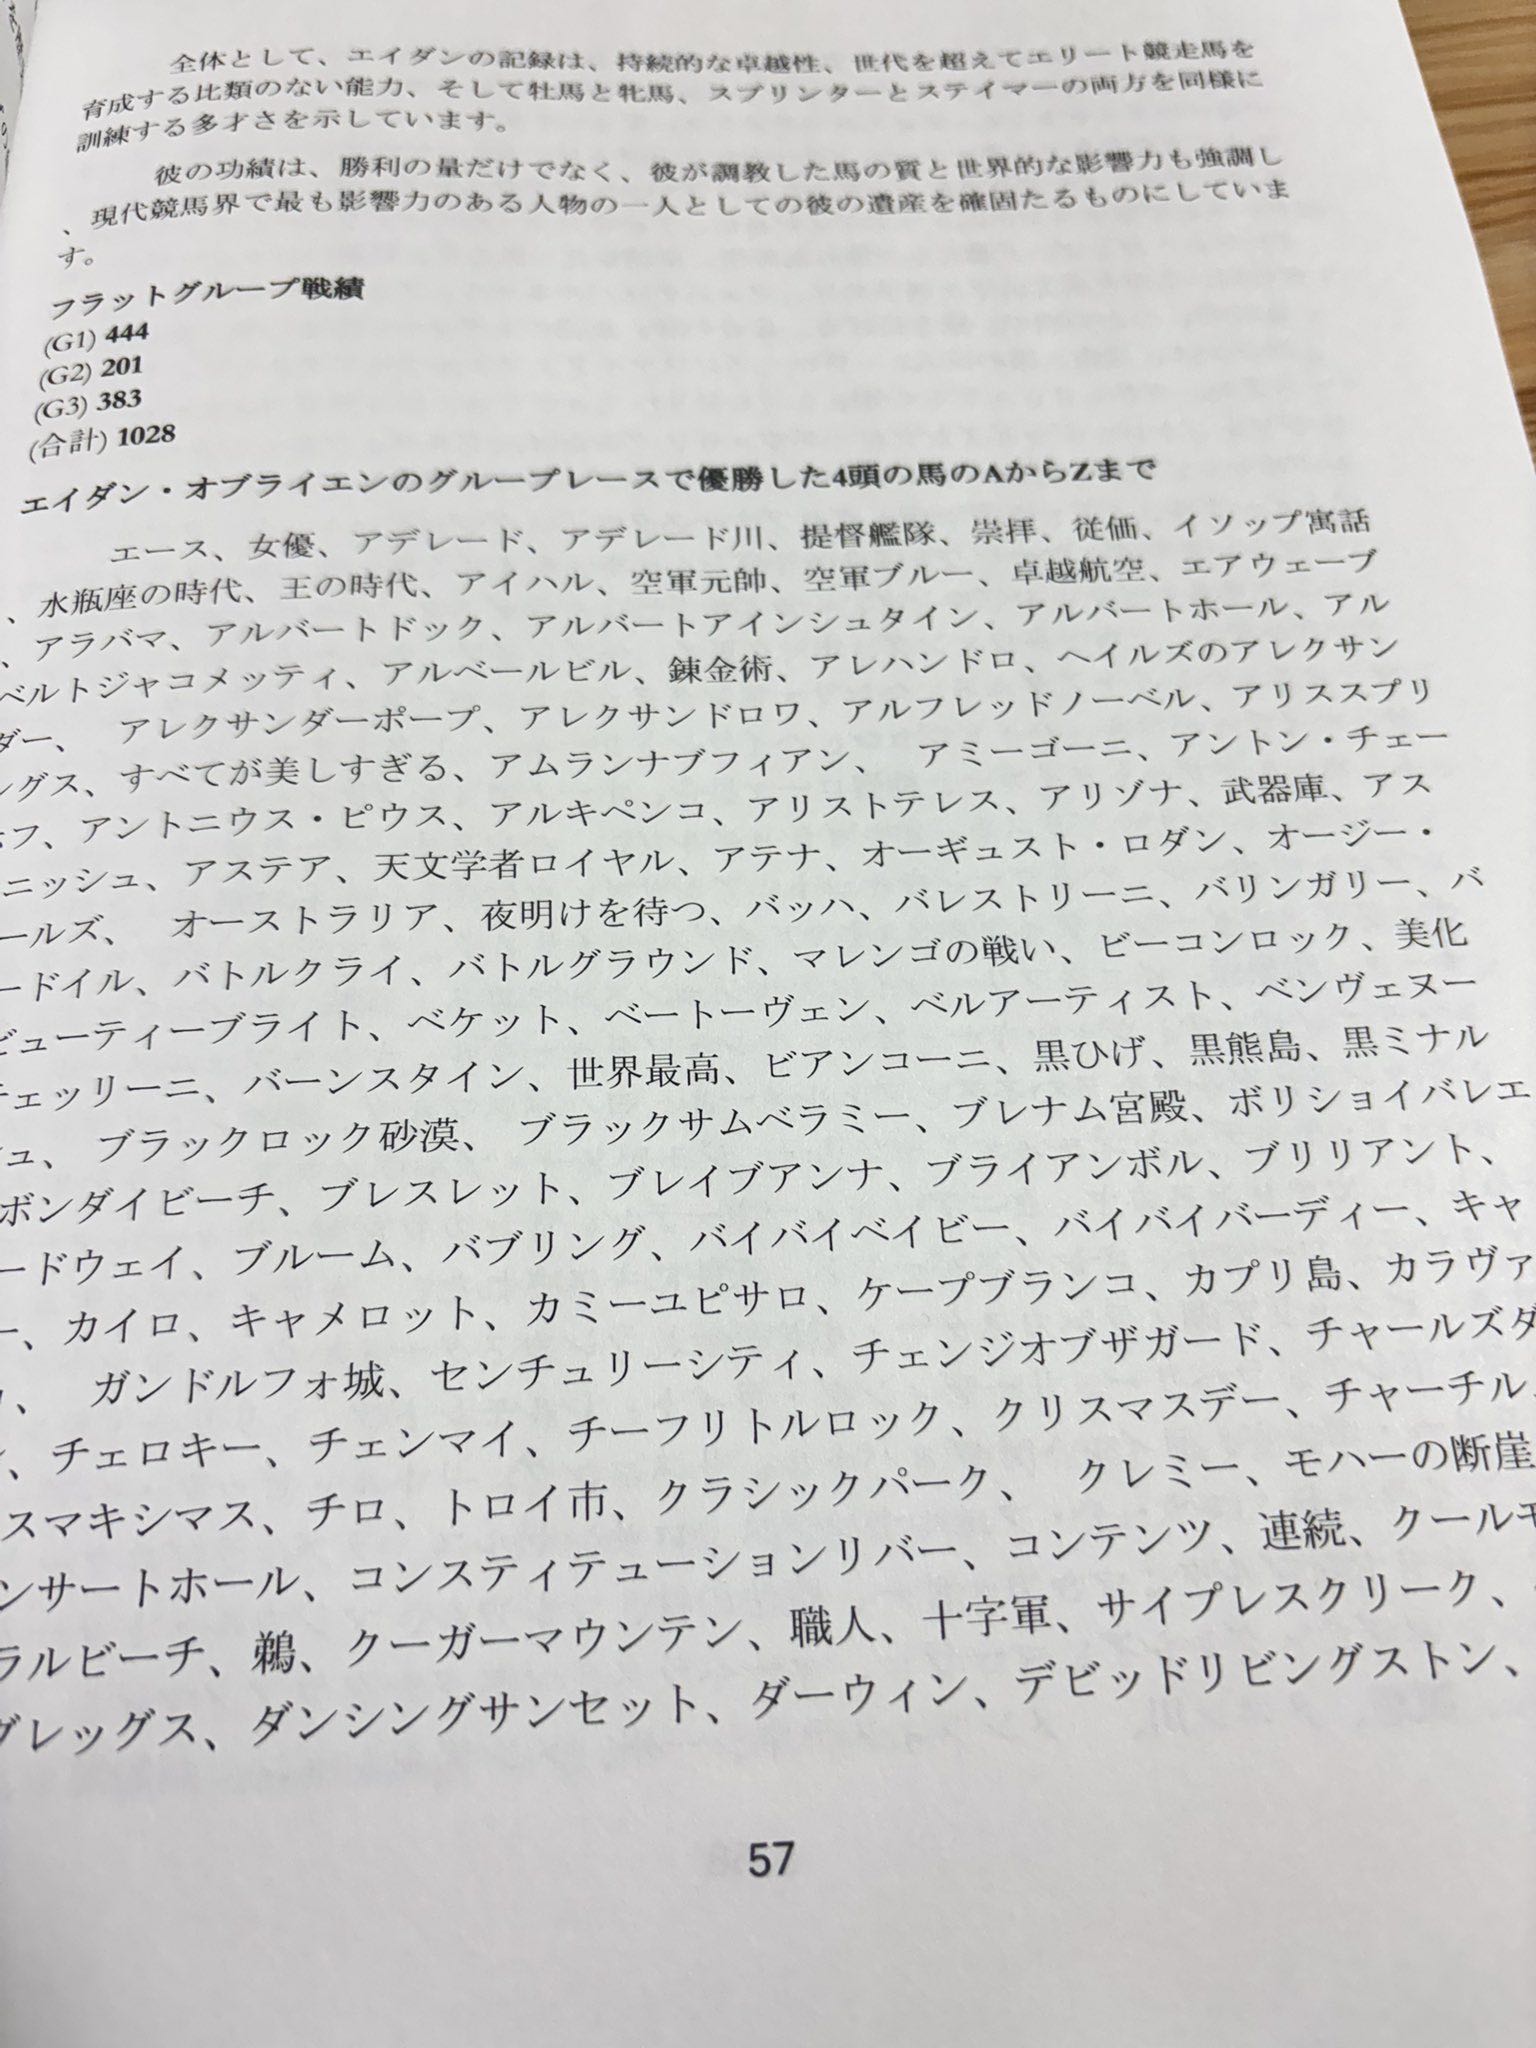 全体として、エイダンの記録は、持続的な卓越性、世代を超えてエリート競走馬を
育成する比類のない能力、そして牡馬と牝馬、スプリンターとステイマーの両方を同様に
訓練する多才さを示しています。
彼の功績は、勝利の量だけでなく、彼が調教した馬の質と世界的な影響力も強調し
、現代競馬界で最も影響力のある人物の一人としての彼の遺産を確固たるものにしていま
す。
フラットグループ戦績
(G1) 444
(G2) 201
(G3) 383
(合計) 1028
エイダン・オブライエンのグループレースで優勝した4頭の馬のAからZまで
エース、女優、アデレード、アデレード川、提督艦隊、崇拝、従価、イソップ寓話
、水瓶座の時代、王の時代、アイハル、空軍元帥、空軍ブルー、卓越航空、エアウェーブ
、アラバマ、アルバートドック、アルバートアインシュタイン、アルバートホール、アル
ベルトジャコメッティ、アルベールビル、錬金術、アレハンドロ、ヘイルズのアレクサン
ダー、 アレクサンダーポープ、アレクサンドロワ、アルフレッドノーベル、アリススプリ
ングス、すべてが美しすぎる、アムランナブフィアン、 アミーゴーニ、アントン・チェー
ホフ、アントニウス・ピウス、アルキペンコ、アリストテレス、アリゾナ、武器庫、アス
ニッシュ、アステア、天文学者ロイヤル、アテナ、オーギュスト・ロダン、オージー・
ールズ、 オーストラリア、夜明けを待つ、バッハ、バレストリーニ、バリンガリー、バ
ードイル、バトルクライ、バトルグラウンド、マレンゴの戦い、ビーコンロック、美化
ビューティーブライト、ベケット、ベートーヴェン、ベルアーティスト、ベンヴェヌー
チェッリーニ、バーンスタイン、世界最高、ビアンコーニ、黒ひげ、黒熊島、黒ミナル
ュ、 ブラックロック砂漠、 ブラックサムベラミー、ブレナム宮殿、ボリショイバレエ
ボンダイビーチ、ブレスレット、ブレイブアンナ、ブライアンボル、ブリリアント、
ードウェイ、ブルーム、バブリング、バイバイベイビー、バイバイバーディー、キャ
ー、カイロ、キャメロット、カミーユピサロ、ケープブランコ、カプリ島、カラヴァ
、 ガンドルフォ城、センチュリーシティ、チェンジオブザガード、チャールズダ
ン、チェロキー、チェンマイ、チーフリトルロック、クリスマスデー、チャーチル、
スマキシマス、チロ、トロイ市、クラシックパーク、 クレミー、モハーの断崖
ンサートホール、コンスティテューションリバー、コンテンツ、連続、クールモ
ラルビーチ、鵜、クーガーマウンテン、職人、十字軍、サイプレスクリーク、
グレッグス、ダンシングサンセット、ダーウィン、デビッドリビングストン、
57